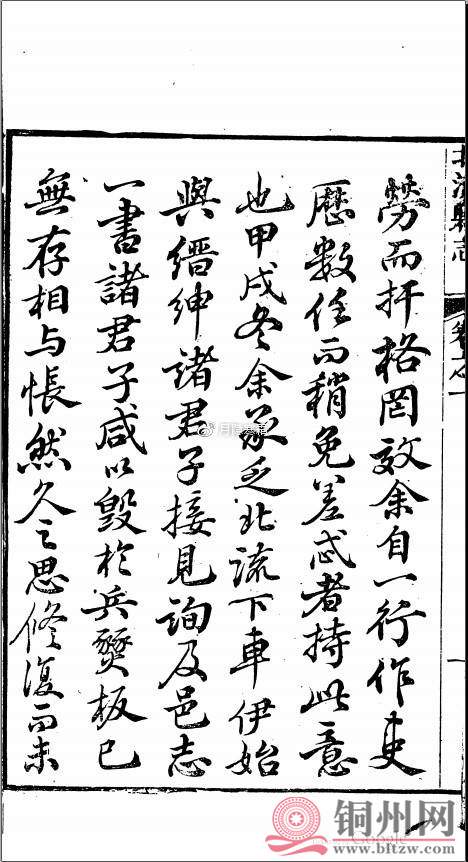 勞而扞格罔效余自一行作吏
歷數任而稍免差忒者持此意
也甲戌冬余承乏北流下車伊始
與縉紳諸君子接見詢及邑志
一書諸君子咸以毀於兵燹板已
無存相与悵然久之思修復而未
北流縣志
銅州网
www.bftzw.com